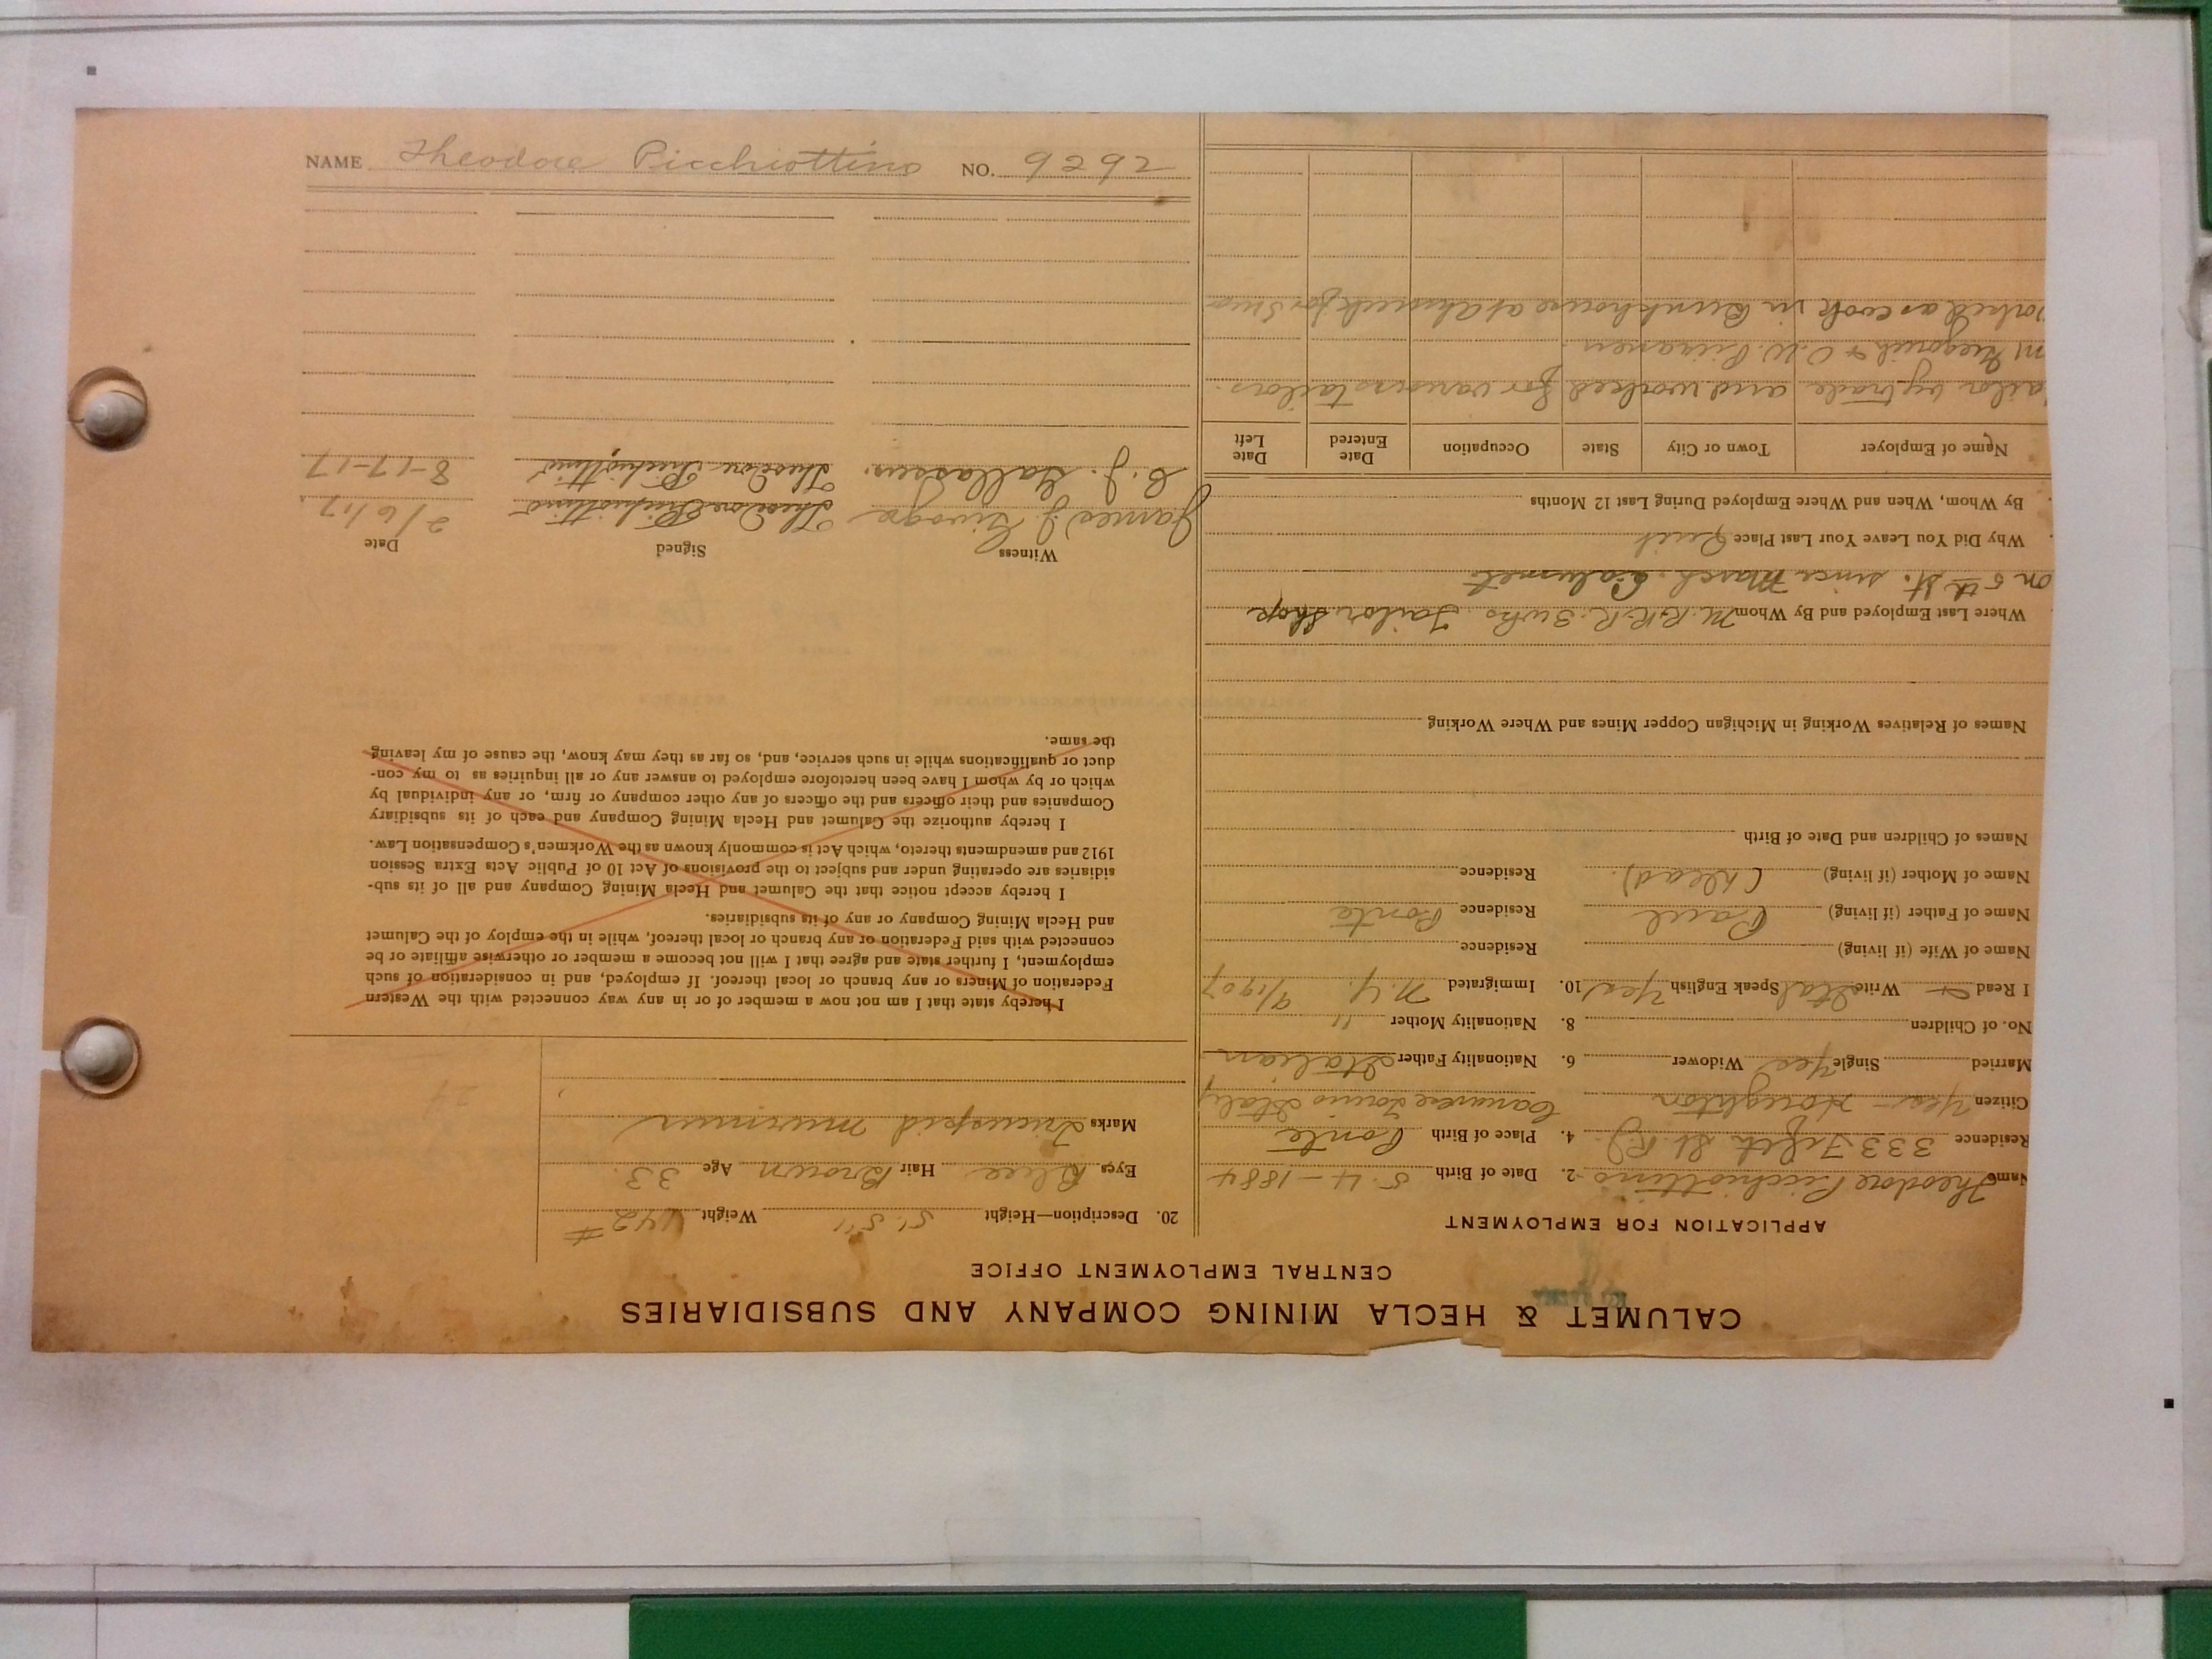 CALUMET & HECLA MINING COMPANY AND SUBSIDIARIES
CENTRAL EMPLOYMENT OFFICE
APPLICATION FOR EMPLOYMENT
Name Theodore Picchiottino 2. Date of Birth 5-4-1884
Residence 333 Fifth St. R.J. 4. Place of Birth Ponte
Citizen Yes - Houghton Canavese Torino Italy
Married Single Yes Widower 6. Nationality Father Italian
No. of Children 8. Nationality Mother "
I Read Write Ital Speak English Yes 10. Immigrated N.Y. 9/1907
Name of Wife (if living) Residence
Name of Father (if living) Paul Residence Ponte
Name of Mother (if living) (Dead) Residence
Names of Children and Date of Birth
Names of Relatives Working in Michigan Copper Mines and Where Working
Where Last Employed and By Whom Tailor Shop
on 5th St. since March Calumet
Why Did You Leave Your Last Place Quit
By Whom, When and Where Employed During Last 12 Months
Name of Employer Town or City State Occupation Date Entered Date Left
ailor by trade and worked for various tailors.
orked as cook in Bunkhouse at Ahmeek for
20. Description—Height 5' 5" Weight 142 #
Eyes Blue Hair Brown Age 33
Marks Tricuspid murmur
I hereby state that I am not now a member of or in any way connected with the Western
Federation of Miners or any branch or local thereof. If employed, and in consideration of such
employment, I further state and agree that I will not become a member or otherwise affiliate or be
connected with said Federation or any branch or local thereof, while in the employ of the Calumet
and Hecla Mining Company or any of its subsidiaries.
I hereby accept notice that the Calumet and Hecla Mining Company and all of its sub-
sidiaries are operating under and subject to the provisions of Act 10 of Public Acts Extra Session
1912 and amendments thereto, which Act is commonly known as the Workmen's Compensation Law.
I hereby authorize the Calumet and Hecla Mining Company and each of its subsidiary
Companies and their officers and the officers of any other company or firm, or any individual by
which or by whom I have been heretofore employed to answer any or all inquiries as to my con-
duct or qualifications while in such service, and, so far as they may know, the cause of my leaving
the same.
Witness Signed Date
James J. Theodore Picchiottino 2/6/17
Theodore Picchiottino 8-17-17
NAME Theodore Picchiottino NO. 9292